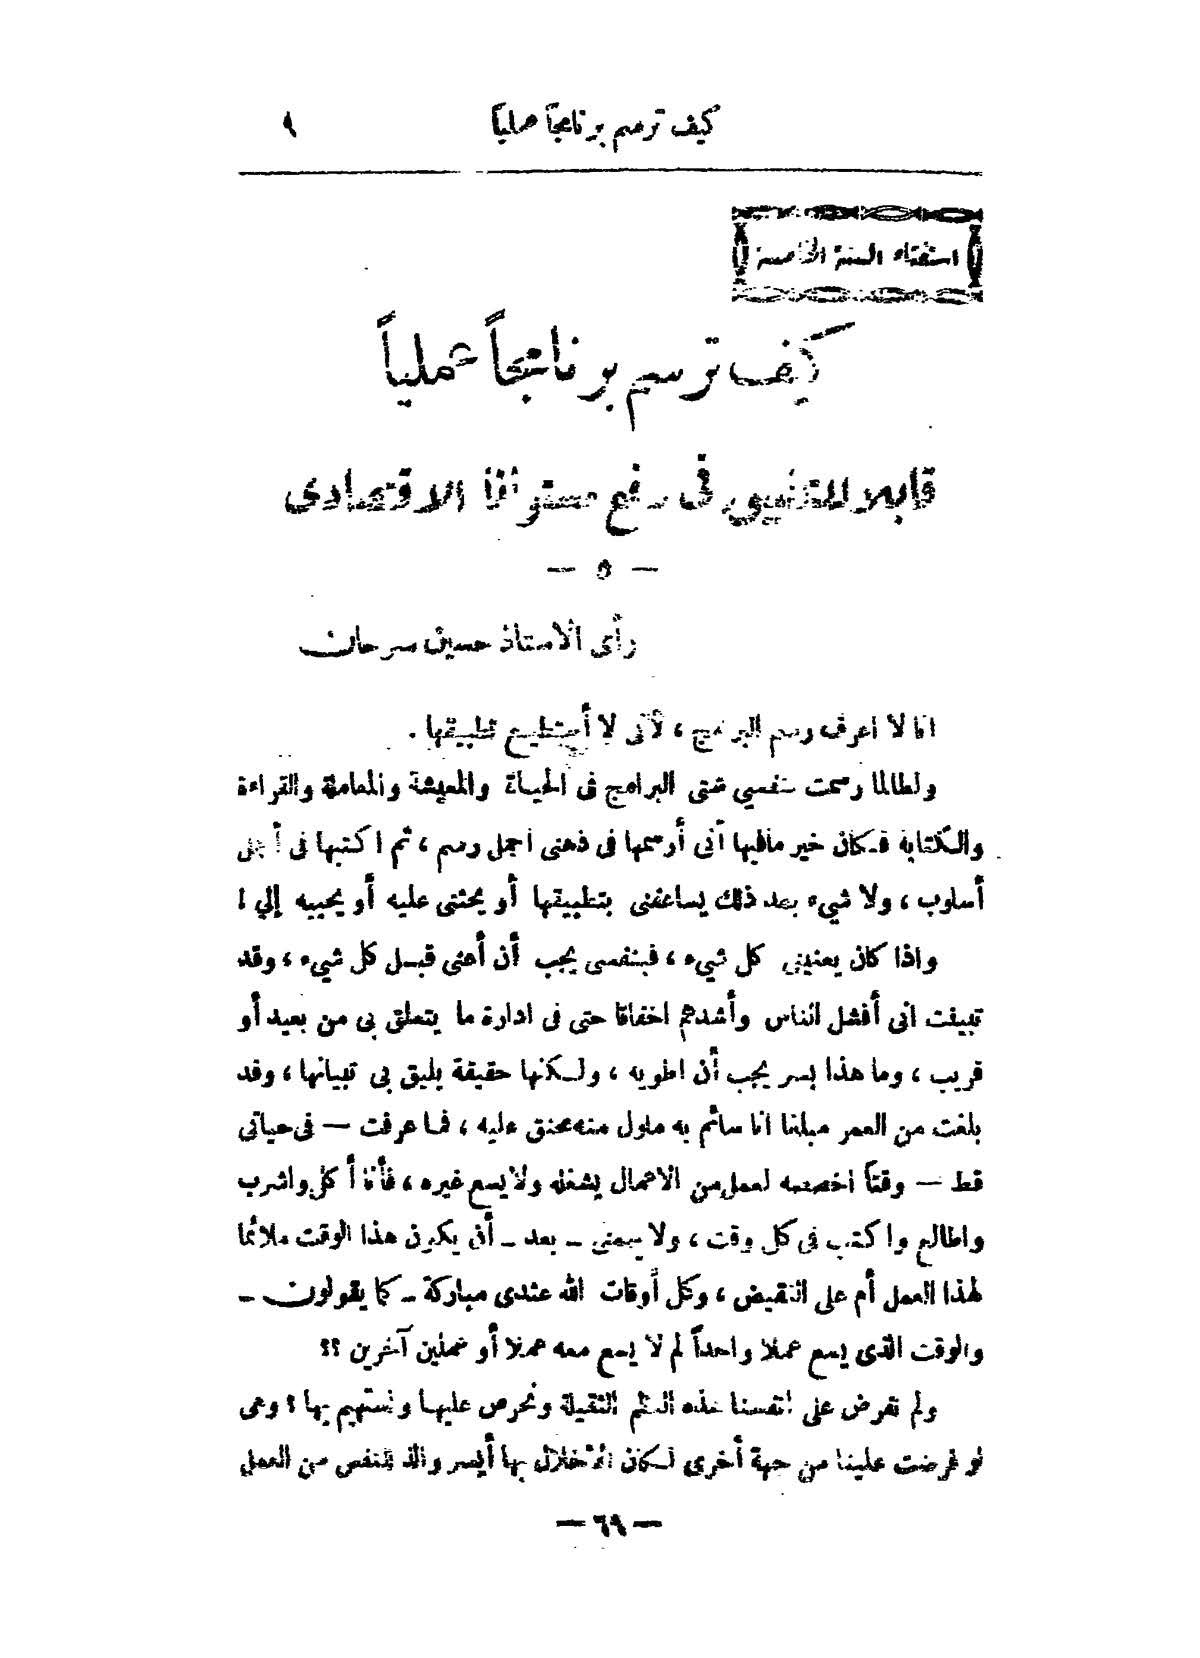 كيف ترسم برنامجاً عملياً ٩
استفتاء السنة الخامسة
كيف ترسم برنامجاً عملياً
قابلا للتنفيذ فى رفع مستوانا الاقتصادى
— ٥ —
رأى الاستاذ حسين سرحان
انا لا اعرف رسم البرامج ، لأنى لا أستطيع تطبيقها .
ولطالما رسمت لنفسي شتى البرامج فى الحياة والمعيشة والمعاملة والقراءة
والكتابة فكان خير مافيها أنى أرسمها فى ذهنى اجمل رسم ، ثم اكتبها فى أجمل
أسلوب ، ولا شيء بعد ذلك يساعفنى بتطبيقها أو يحثنى عليه أو يحببه إلي !
واذا كان يعنينى كل شيء ، فبنفسى يجب أن أعنى قبل كل شيء ، وقد
تبينت انى أفشل الناس وأشدهم اخفاقا حتى فى ادارة ما يتعلق بى من بعيد أو
قريب ، وما هذا بسر يجب أن اطويه ، ولكنها حقيقة يليق بى تبيانها ، وقد
بلغت من العمر مبلغا انا سائم به ملول منه محنق عليه ، فما عرفت — فى حياتى
قط — وقتاً اخصصه لعمل من الاعمال يشغله ولا يسع غيره ، فأنا أكل واشرب
واطالع واكتب فى كل وقت ، ولا يهمنى – بعد – أن يكون هذا الوقت ملائما
لهذا العمل أم على النقيض ، وكل أوقات الله عندى مباركة – كما يقولون –
والوقت الذى يسع عملا واحداً لم لا يسع معه عملا أو عملين آخرين ؟؟
ولم نفرض على انفسنا هذه النظم الثقيلة ونحرص عليها ونستهيم بها ؟ وهى
لو فرضت علينا من جهة أخرى لكان الاخلال بها أيسر والذ للنفس من العمل
— ٦٩ —